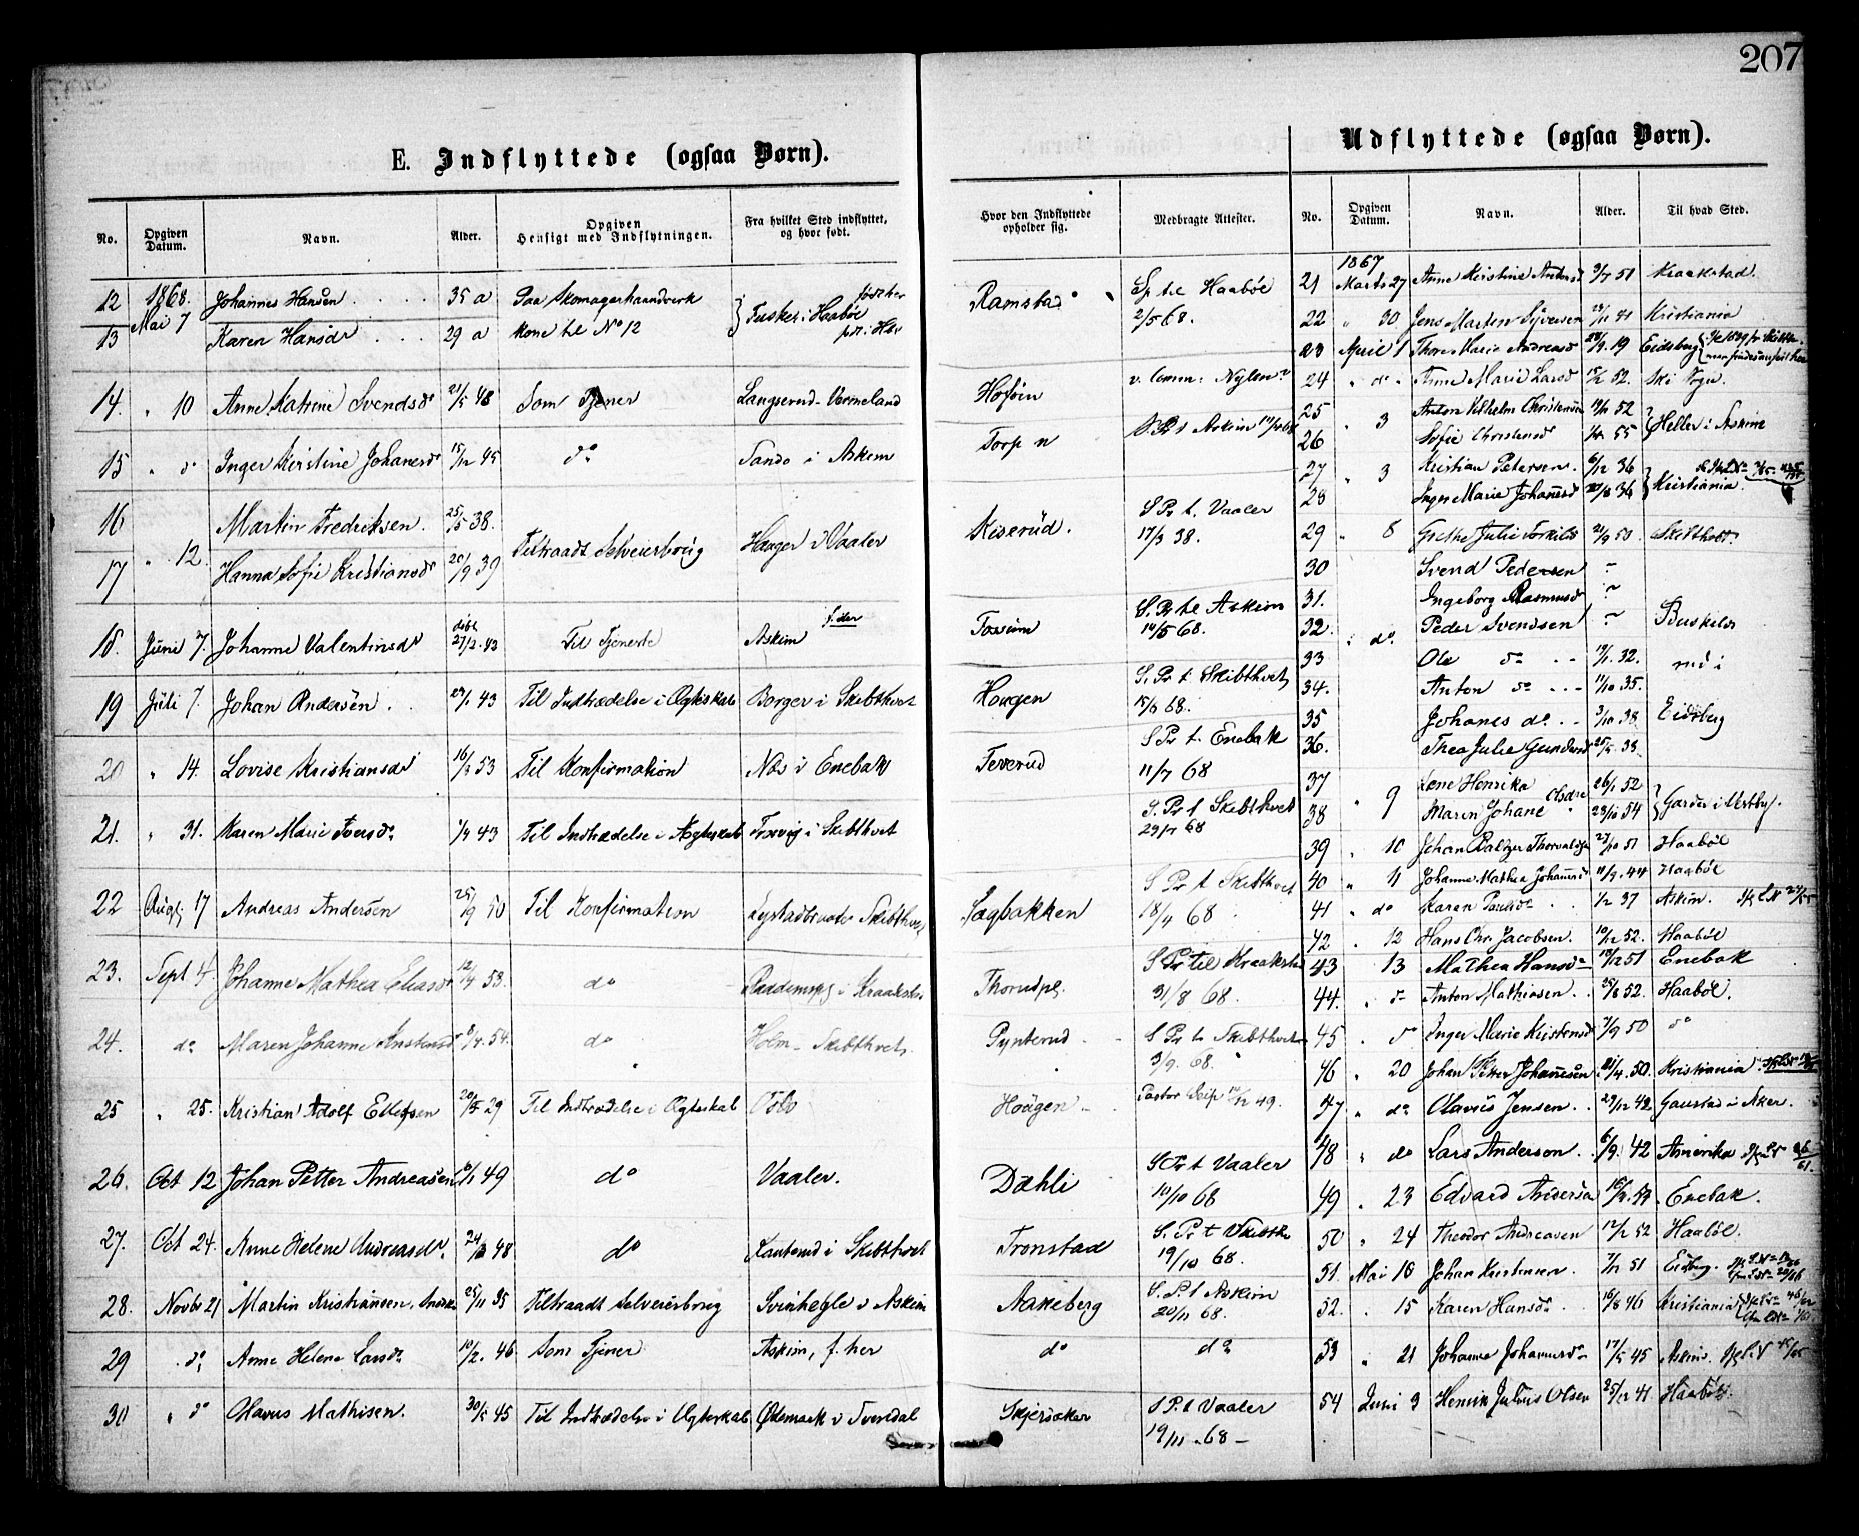 207
E. Indflyttede (ogsaa Børn).
No. Opgiven Datum. Navn. Alder. Opgiven Hensigt med Indflytningen. Fra hvilket Sted indflyttet, og hvor født. Hvor den Indflyttede opholder sig. Medbragte Attester.
12 1868. Mai 7 Johannes Hansen 35 a Paa Skomagerhaandverk Tusker i Haabøl født her Ramstad Sp til Haabøl 2/5 68.
13 Karen Hansdr 29 a Kone til No 12
14. " 10 Anne Katrine Svendsdr 21/5 48 Som Tjener Langserud - Vermeland Hofoin
15 " do Inger Kirstine Johanesdr 15/12 45 do Sando i Askim Torp n S. Pr t Askim
16 Martin Fredriksen. 25/5 38. Tiltraadt Selveierbrug Hauger i Vaaler Kiserud. S Pr t. Vaaler
17 " 12. Hanna Sofie Kristiansdr 20/9 39 17/3 38.
18. Juni 7. Johanne Valentinsdr døbt 27/2.43 Til Tjeneste Askim f. der Tosium S. Pr til Askim 14/5 68.
19 Juli 7. Johan Andersen 29/1 43 Til Indtrædelse i Ægteskab Borger i Skibthvet Hougen S. Pr t Skibthvet 15/6 68.
20 " 14. Lovise Kristiansdr 16/3 53 Til Konfirmation Næs i Enebak Teverud S Pr t. Enebak 11/7 68
21. " 31. Karen Marie Iversdr 1/4 43 Til Indtrædelse i Ægteskab i Skibthvet S. Pr t Skibthvet 29/7 68
22 Aug 17 Andreas Andersen 25/9 50 Til Konfirmation Skibthvet Sagbakken S Pr t Skibthvet 18/4 68
23. Sept 4. Johanne Mathea Eliasdr 12/4 53. do i Kraakstad Thorudpl. S Pr til Kraakstad 31/8 68.
24. do Maren Johanne 8/4.54. do Holm - Skibthvet. Pynterud S Pr t. Skibthvet 3/9. 68.
25 " 25. Kristian Adolf Ellefsen 20/5 29 Til Indtrædelse i Ægteskab Oslo Hougen Pastor
26. Oct 12 Johan Petter Andreasen 49 do Vaaler. Dæhli S Pr t Vaaler 10/10 68
27. Oct 24. Anne Helene Andreasdr. 48 do i Skibthvet Tronstad S. Pr t 19/10 68.
28. Novbr 21 Martin Kristiansen, 25/11 35 Tiltraadt Selveierbrug Svinhegle i Askim Aakeberg S. P. t Askim 20/11 68.
29 do Anne Helene Larsdr 10/2. 46 Som Tjener Askim, f. her do do
30 " do Olavus Mathisen. 30/5 45 Til Indtrædelse i Ægteskab Ødemark i Skjersaker S P. t Vaaler 19/11.68 -
Udflyttede (ogsaa Børn).
No. Opgiven Datum. Navn. Alder. Til hvad Sted.
21 1867 Marts 27 Anne Kirstine 9/7 51 Kraakstad.
22 " 30 Jens Marten Syversen Kristiania
23 April 1 Thore Marie Andreasdr 19 Eidsberg
24 " do Anne Marie Larsd 52. Ski Sogn.
25 Anton Vilhelm Christensen 52 Heller i Askim
26 " 3 Sofie Christensd 55
27 " 3 Kristian Petersen. 6/12 36 Kristiania.
28 Inger Marie Johannesd 36
29 " 8 Grethe Julie Torkilsd 50 Skibthvet.
30 Svend Pedersen Buskeløs
31. Ingeborg Rasmusd rud i
32. " do. Peder Svendsen Eidsberg
33 Ole do 32.
34. Anton do 11/10 35.
35 Johanes do 3/10 38.
36. Thea Julie Gundersd 38.
37 Lene Henrika Olsdre 26/1 52 Garder i Vestby.
38 " 9 Maren Johane " 23/10 54
39 " 10 Johan Baltzer Thorvaldsen 27/10 51 Haabøl
40 " 11 Johanne Mathea Johansd 11/9.44 Haabøl
41 " do Karen Paulsdr 1/2 37 Askim.
42 " 12 Hans Chr. Jacobsen. 10/12 52. Haabøl
43 13 Mathea Hansdr 51 Enebak
44. " do Anton Mathiasen 25/8 52. Haabøl.
45 " do Inger Marie Kristensd 7/9 50 do
46 " 20 Johan Petter Johannesen 21/4.50. Kristiania
47 " do Olavus Jensen 29/12 42 Gaustad i Aker.
48 " do Lars Anderson 6/9. 42 Amerika
49 " 23 Edvard Anderson Enebak.
50 " 24 Theodor Andreasen 12/12 52 Haabøl.
51. Mai 10 Johan Kristensen. 7/12 51 Eidberg.
52. " 15 Karen Hansdr 16/8 46 Kristiania
53 " 21 Johanne Johannesdr 17/5 45 Askim.
54 Juni 3 Henrik Julius Olsen 25/12 41. Haabøl.